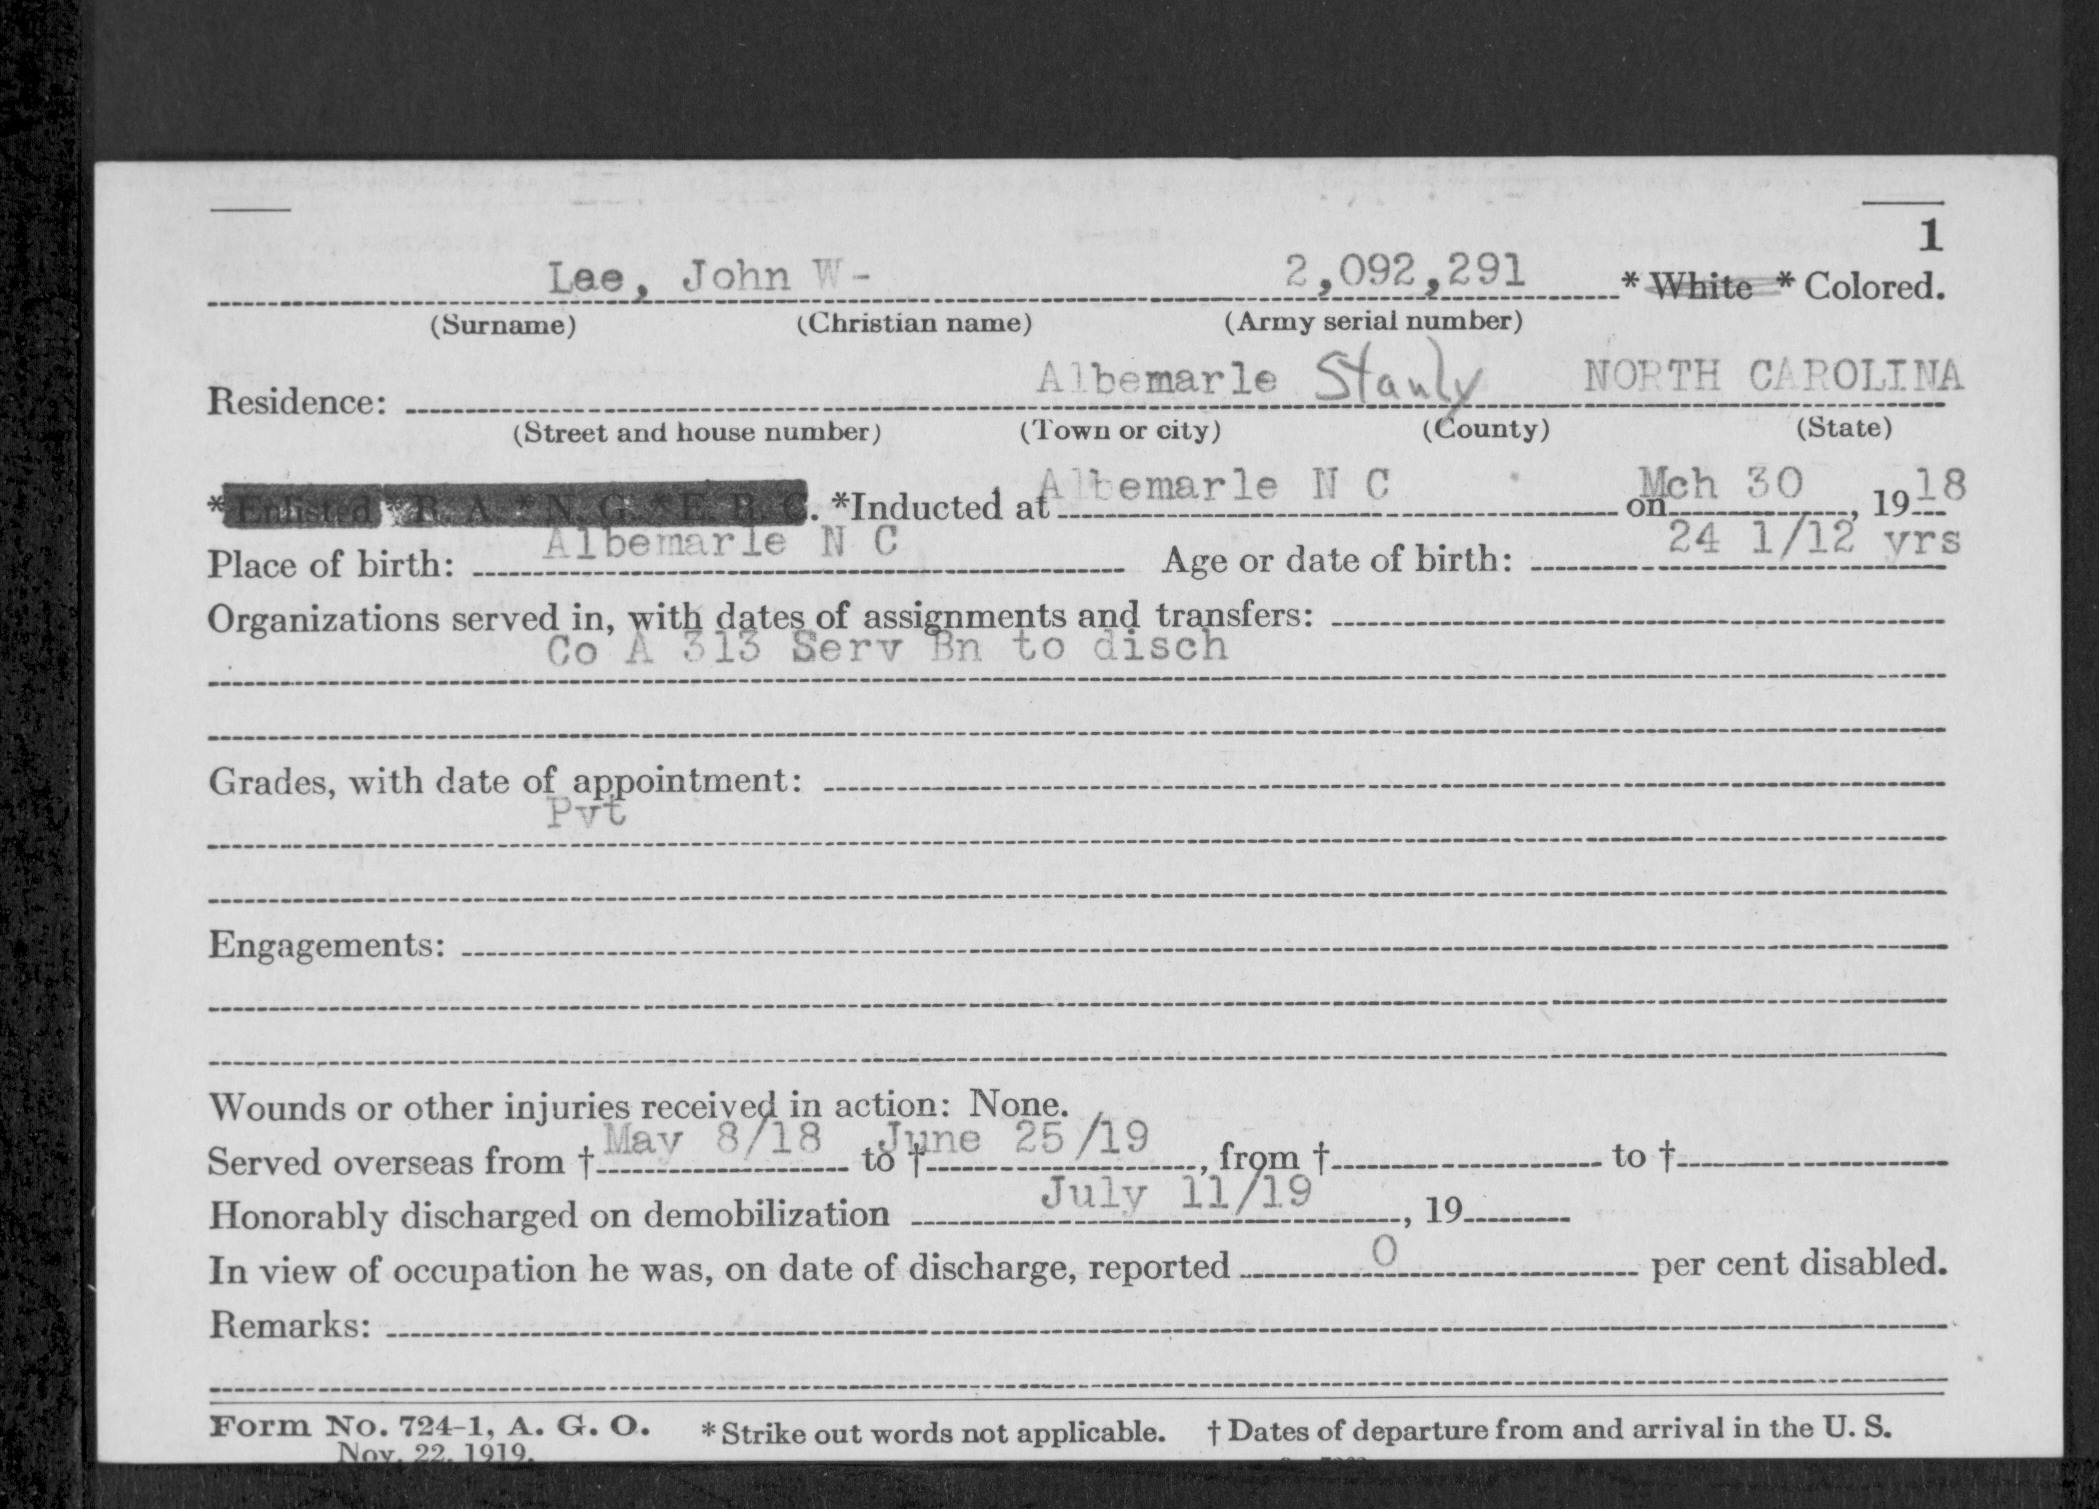 1
Lee, John W- 2,092,291 * White * Colored.
(Surname) (Christian name) (Army serial number)
Residence: Albemarle Stanly NORTH CAROLINA
(Street and house number) (Town or city) (County) (State)
* Enlisted * R. A. * N. G. * E. R. C. *Inducted at Albemarle N C on Mch 30, 1918
Place of birth: Albemarle N C Age or date of birth: 24 1/12 yrs
Organizations served in, with dates of assignments and transfers:
Co A 313 Serv Bn to disch
Grades, with date of appointment:
Pvt
Engagements:
Wounds or other injuries received in action: None.
Served overseas from † May 8/18 to † June 25/19, from † to †
Honorably discharged on demobilization July 11/19, 19
In view of occupation he was, on date of discharge, reported 0 per cent disabled.
Remarks:
Form No. 724-1, A. G. O. * Strike out words not applicable. † Dates of departure from and arrival in the U. S.
Nov. 22, 1919.